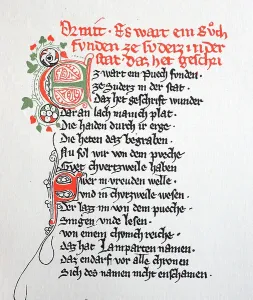 Ornit · Es wart ein Buoch
funden ze suders in der
stat · daz het geschri
Ez wart ein puech funden
ze Suders in der stat
Daz het geschrift wunder
Dar an lach manich plat
Die haiden durch ir erge
Die heten daz begraben
Nu sol wir von dem pueche
Guet churtzweile haben
Swer in vreuden welle
Vnd in churtzweile wesen
Der laz im von dem pueche
Singen vnde lesen
von einem chunich reiche
daz hat Lamparten namen
daz endarf vor alle chronen
Sich des namen nicht enschamen